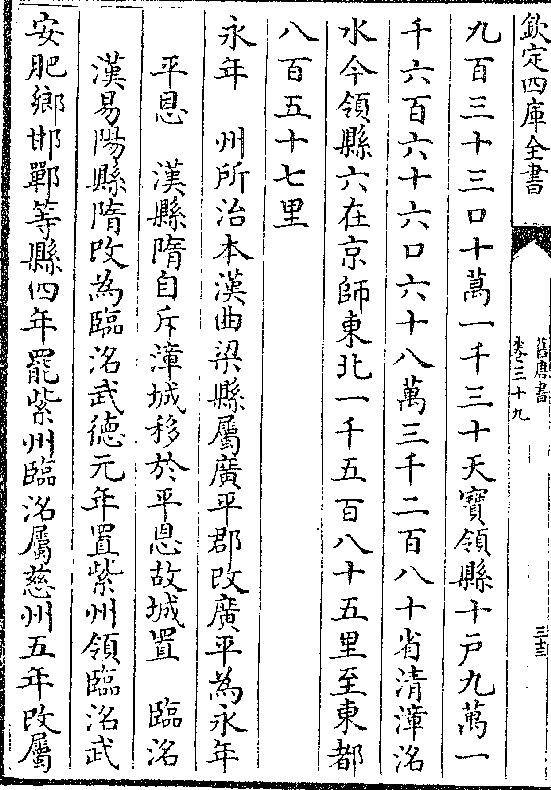 欽定四庫全書
舊唐書
卷三十九
三十三
九百三十三口十萬一千三十天寶領縣十戸九萬一
千六百六十六口六十八萬三千二百八十省清漳洺
水今領縣六在京師東北一千五百八十五里至東都
八百五十七里
永年　州所治本漢曲梁縣屬廣平郡改廣平為永年
平恩　漢縣隋自斥漳城移於平恩故城置　臨洺
漢易陽縣隋改為臨洺武徳元年置紫州領臨洺武
安肥鄉邯鄲等縣四年罷紫州臨洺屬慈州五年改屬